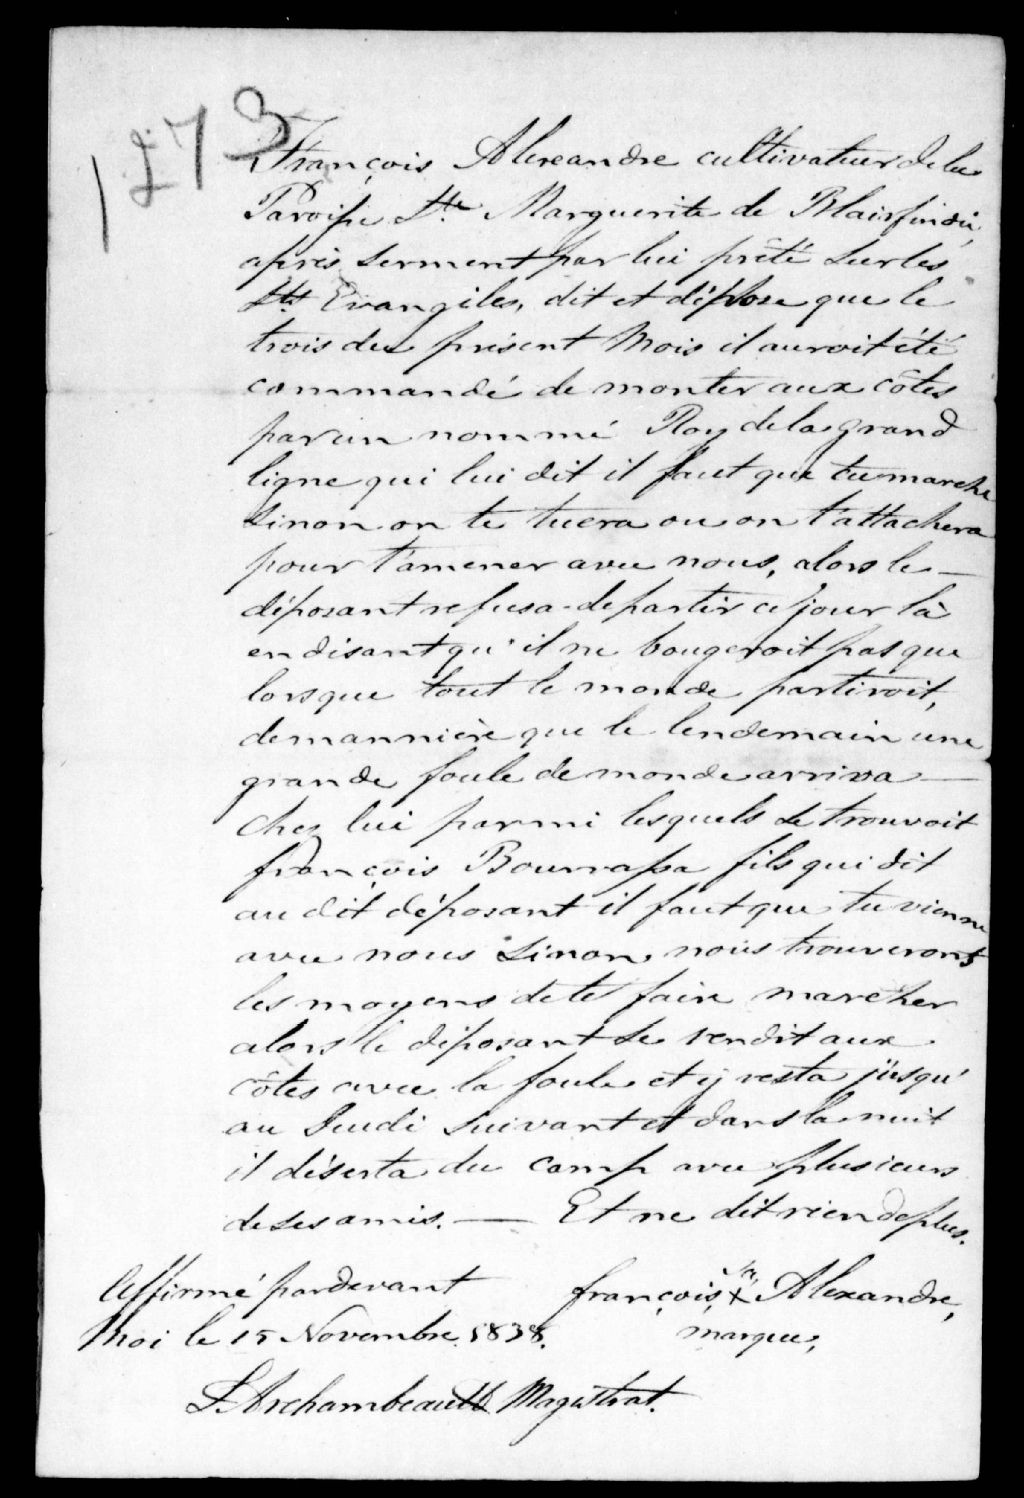 1273
François Alexandre cultivateur de la
Paroisse Ste Marguerite de Blairfindie,
après serment par lui prêté sur les
Sts Evangiles, dit et dépose que le
trois du présent Mois il auroit été
commandé de monter aux côtes
par un nommé Roy de la grand
ligne qui lui dit il faut que tu marche
sinon on te tuera ou on t'attachera
pour t'amener avec nous, alors le —
déposant refusa de partir ce jour là
en disant qu'il ne bougeroit pas que
lorsque tout le monde partiroit,
de mannière que le lendemain une
grande foule de monde arriva —
chez lui parmi lesquels se trouvoit
françois Bourrassa fils qui dit
au dit déposant il faut que tu vienne
avec nous sinon nous trouverons
les moyens de te faire marcher
alors le déposant se rendit aux
côtes avec la foule et y resta jusqu'
au Jeudi suivant et dans la nuit
il déserta du camp avec plusieurs
de ses amis. — Et ne dit rien de plus.
Affirmé pardevant françois sa X Alexandre,
Moi le 15 Novembre 1838. marque,
L. Archambeault Magistrat.